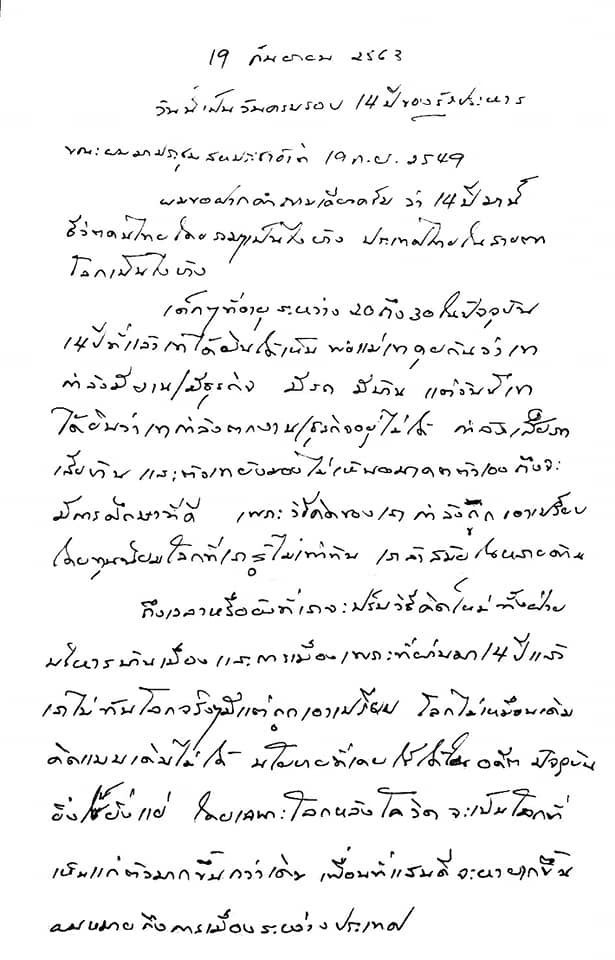 19 กันยายน 2563
วันนี้เป็นวันครบรอบ 14 ปีของรัฐประหาร
ขณะผมมาประชุมสหประชาชาติ 19 ก.ย. 2549
ผมขอฝากคำถามเดียวครับ ว่า 14 ปีมานี้
ชีวิตคนไทยโดยรวมๆเป็นไงบ้าง ประเทศไทยในสายตา
โลกเป็นไงบ้าง
เด็กๆที่อายุ ระหว่าง 20 ถึง 30 ในปัจจุบัน
14 ปีที่แล้วเขาได้ยินได้เห็น พ่อแม่เขาคุยกันว่าเขา
กำลังมีงาน/มีธุรกิจ มีรถ มีบ้าน แต่วันนี้เขา
ได้ยินว่าเขากำลังตกงาน/ธุรกิจอยู่ไม่ได้ กำลังเสียรถ
เสียบ้าน และตัวเขายังมองไม่เห็นอนาคตตัวเอง ถึงจะ
มีการศึกษาที่ดี เพราะวิธีคิดของเรา กำลังถูกเอาเปรียบ
โดยทุนนิยมโลกที่เรารู้ไม่เท่าทัน เราล้าสมัยในหลายด้าน
ถึงเวลาหรือยังที่เราจะปรับวิธีคิดใหม่ ทั้งฝ่าย
บริหารบ้านเมือง และการเมือง เพราะที่ผ่านมา 14 ปีแล้ว
เราไม่ทันโลกจริงๆมีแต่ถูกเอาเปรียบ โลกไม่เหมือนเดิม
คิดแบบเดิมไม่ได้ นโยบายที่เคยใช้ได้ในอดีต ปัจจุบัน
ยิ่งใช้ยิ่งแย่ โดยเฉพาะโลกหลังโควิด จะเป็นโลกที่
เห็นแก่ตัวมากขึ้นกว่าเดิม เพื่อนที่แสนดีจะหายากขึ้น
ผมหมายถึงการเมืองระหว่างประเทศ